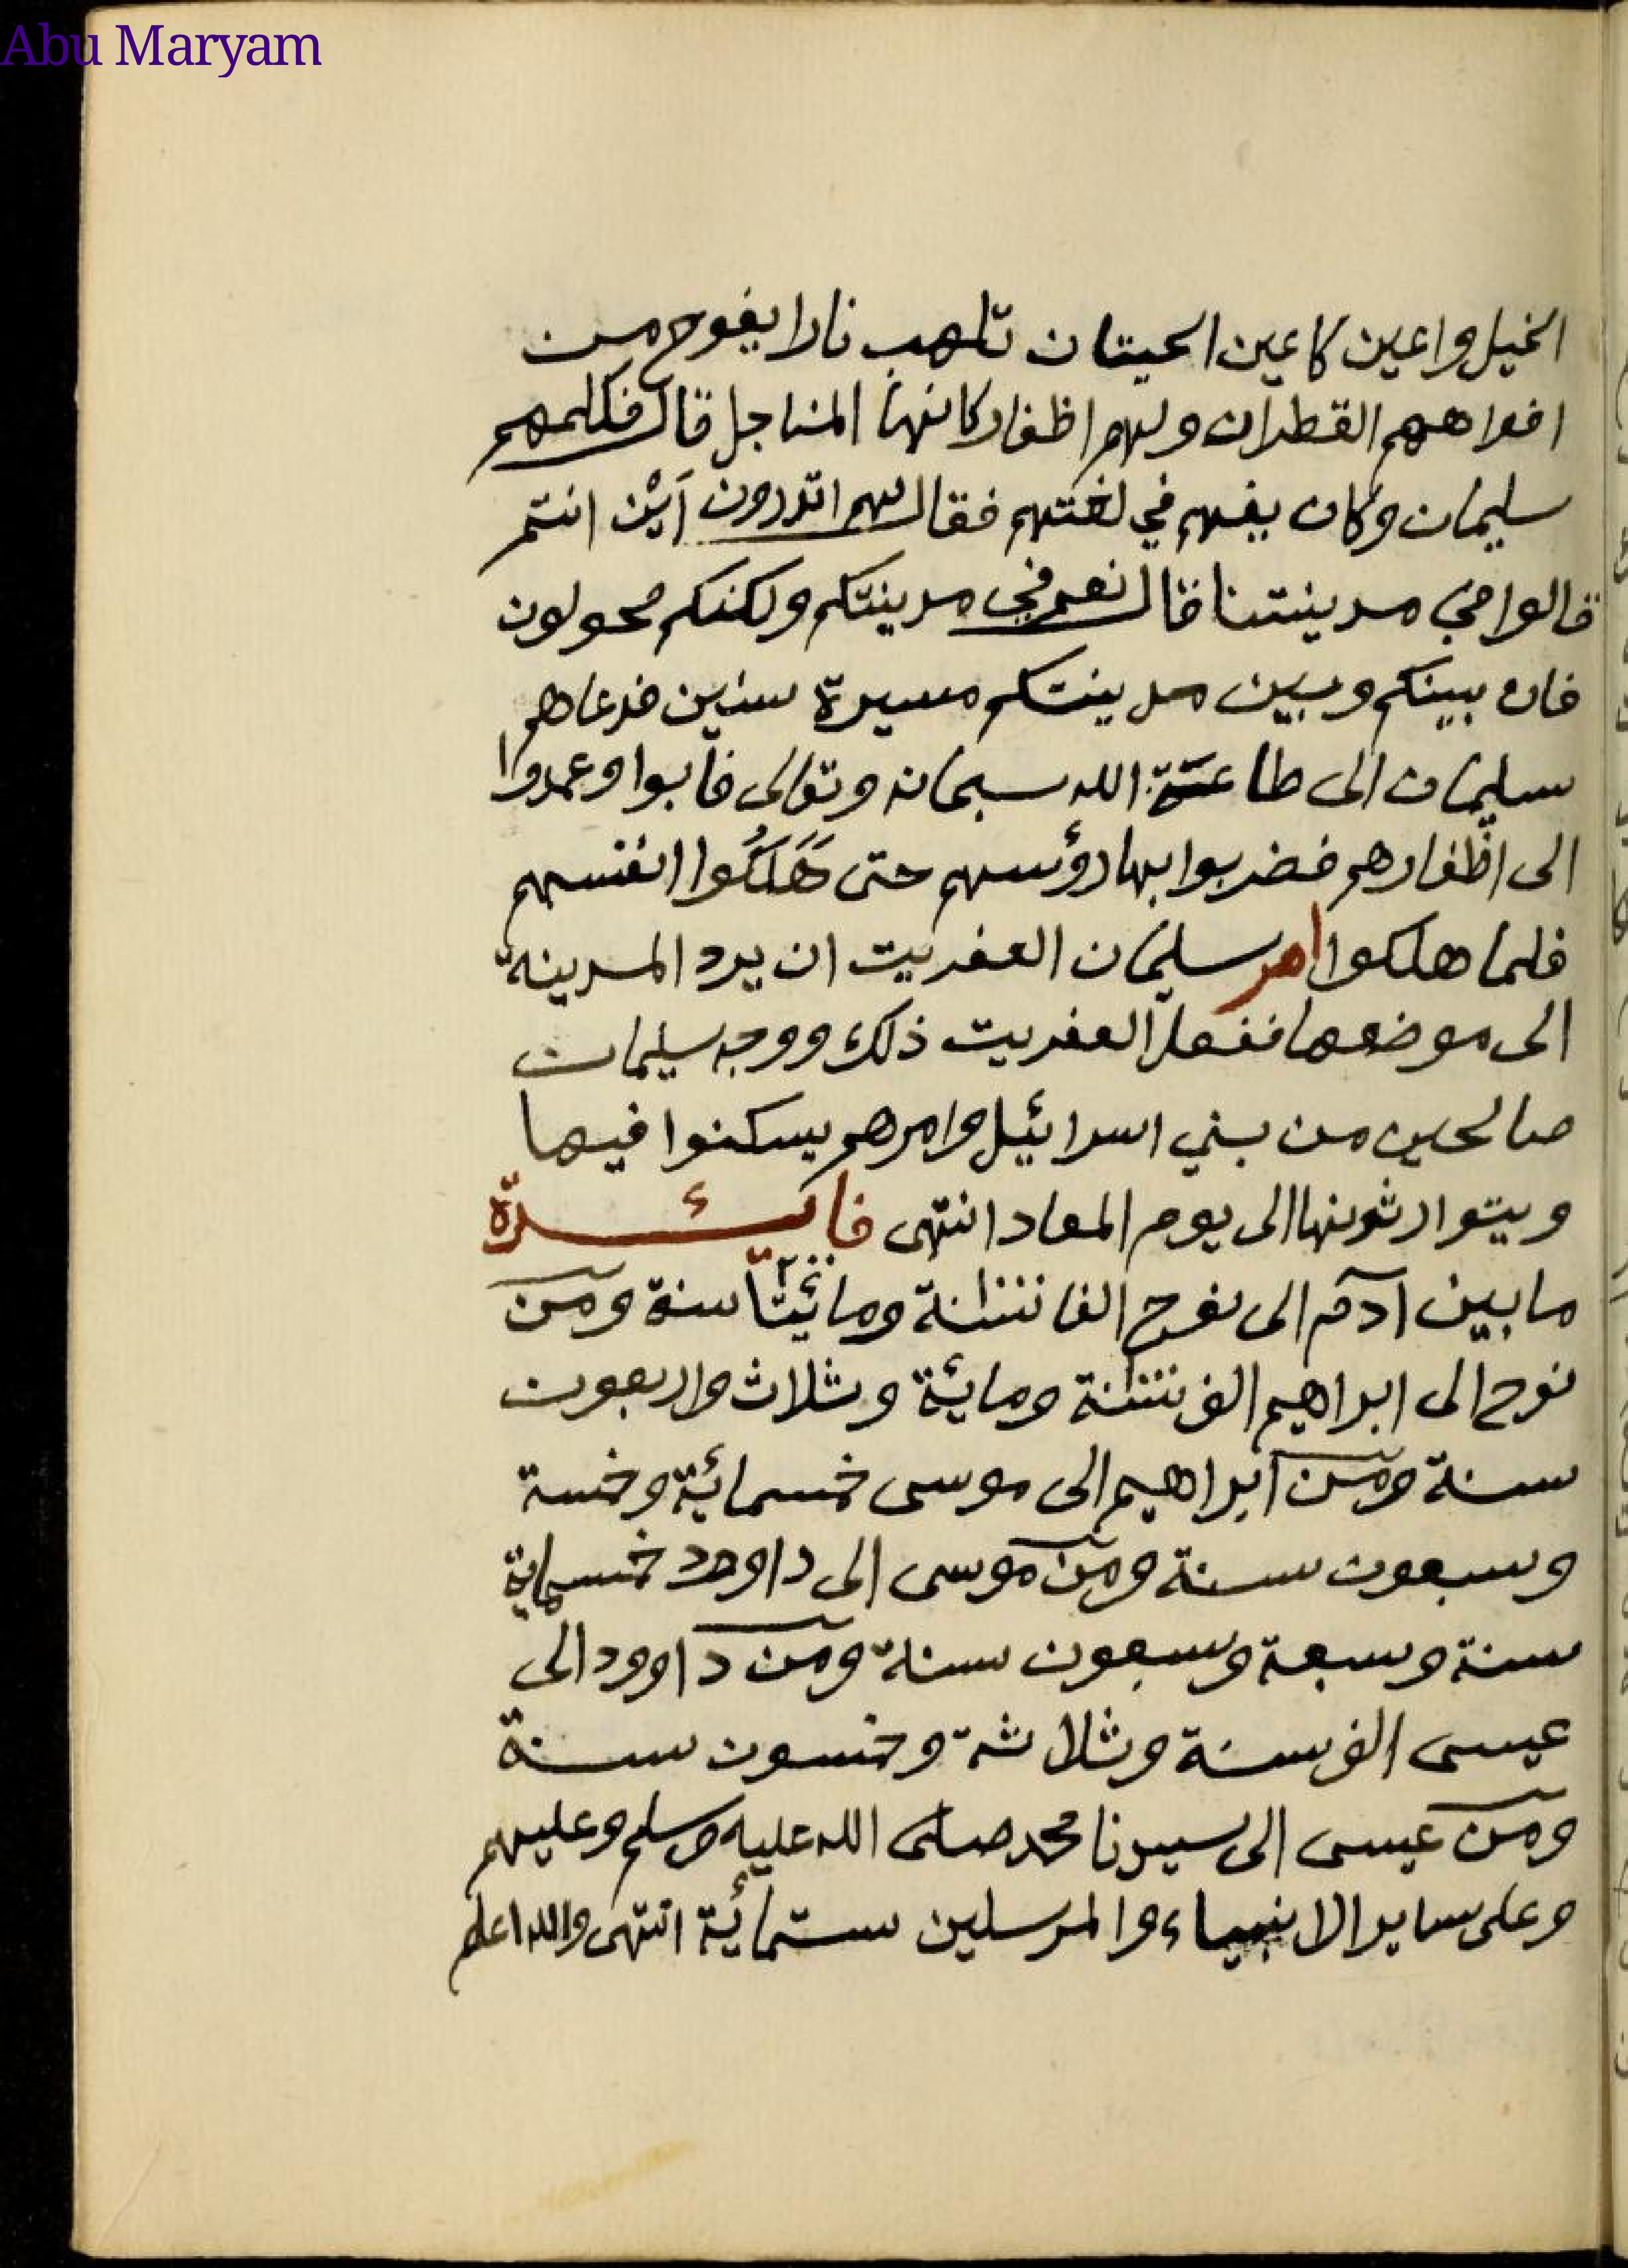 Abu Maryam
الخيل واعين كاعين الحيتان تلهب نارا يفوح من
افواههم القطران ولهم اظفار كانها المناجل قال فكلمهم
سليمان وكان يفهم في لغتهم فقال لهم اتدرون اَيْن انتم
قالوا في مدينتنا قال نعم في مدينتكم ولكنكم محولون
فان بينكم وبين مدينتكم مسيرة سنين فدعاهم
سليمان الى طاعة الله سبحانه وتعالى فابوا وعمدوا
الى اظفارهم فضربوا بها رؤسهم حتى هَلَكُوا انفسهم
فلما هلكوا امر سليمان العفريت ان يرد المدينة
الى موضعها ففعل العفريت ذلك ووجه سليمان
صالحين من بني اسرائيل وامرهم يسكنوا فيها
ويتوارثونها الى يوم المعاد انتهى فائدة
ما بين آدم الى نوح الفا سنة ومائيتا سنة ومن
نوح الى ابراهيم الف سنة ومايئة وثلاث واربعون
سنة ومن ابراهيم الى موسى خمسمائية وخمسة
وسبعون سنة ومن موسى الى داوود خمسماية
سنة وسبعة وسبعون سنة ومن داوود الى
عيسى الف سنة وثلاثة وخمسون سنة
ومن عيسى الى سيدنا محمد صلى الله عليه وسلم وعليهم
وعلى ساير الانبياء والمرسلين ستمائية انتهى والله اعلم